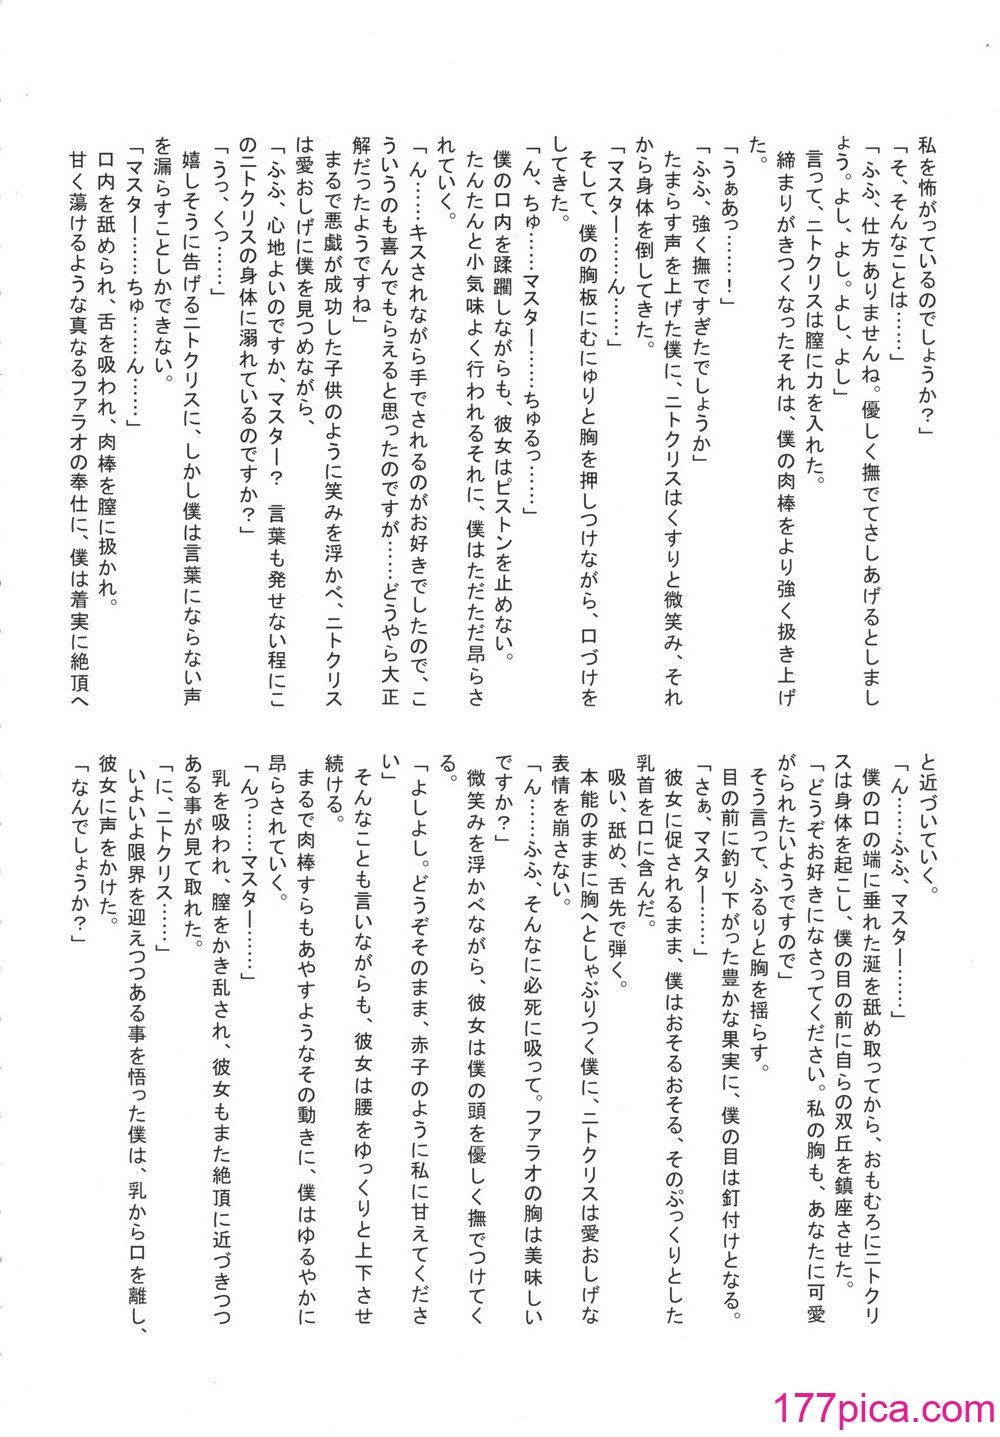 私を怖がっているのでしょうか？」
「そ、そんなことは……」
「ふふ、仕方ありませんね。優しく撫でてさしあげるとしまし
ょう。よし、よし。よし、よし」
言って、ニトクリスは膣に力を入れた。
締まりがきつくなったそれは、僕の肉棒をより強く扱き上げ
た。
「うぁあっ……！」
「ふふ、強く撫ですぎたでしょうか」
たまらず声を上げた僕に、ニトクリスはくすりと微笑み、それ
から身体を倒してきた。
「マスター………ん……」
そして、僕の胸板にむにゅりと胸を押しつけながら、口づけを
してきた。
「ん、ちゅ……マスター………ちゅるっ……」
僕の口内を蹂躙しながらも、彼女はピストンを止めない。
たんたんと小気味よく行われるそれに、僕はただただ昂らさ
れていく。
「ん……キスされながら手でされるのがお好きでしたので、こ
ういうのも喜んでもらえると思ったのですが……どうやら大正
解だったようですね」
まるで悪戯が成功した子供のように笑みを浮かべ、ニトクリス
は愛おしげに僕を見つめながら、
「ふふ、心地よいのですか、マスター？　言葉も発せない程にこ
のニトクリスの身体に溺れているのですか？」
「うっ、くっ……」
嬉しそうに告げるニトクリスに、しかし僕は言葉にならない声
を漏らすことしかできない。
「マスター……ちゅ……ん……」
口内を舐められ、舌を吸われ、肉棒を膣に扱かれ。
甘く蕩けるような真なるファラオの奉仕に、僕は着実に絶頂へ
と近づいていく。
「ん……ふふ、マスター……」
僕の口の端に垂れた涎を舐め取ってから、おもむろにニトクリ
スは身体を起こし、僕の目の前に自らの双丘を鎮座させた。
「どうぞお好きになさってください。私の胸も、あなたに可愛
がられたいようですので」
そう言って、ふるりと胸を揺らす。
目の前に釣り下がった豊かな果実に、僕の目は釘付けとなる。
「さぁ、マスター……」
彼女に促されるまま、僕はおそるおそる、そのぷっくりとした
乳首を口に含んだ。
吸い、舐め、舌先で弾く。
本能のままに胸へとしゃぶりつく僕に、ニトクリスは愛おしげな
表情を崩さない。
「ん……ふふ、そんなに必死に吸って。ファラオの胸は美味しい
ですか？」
微笑みを浮かべながら、彼女は僕の頭を優しく撫でつけてく
る。
「よしよし。どうぞそのまま、赤子のように私に甘えてくださ
い」
そんなことも言いながらも、彼女は腰をゆっくりと上下させ
続ける。
まるで肉棒すらもあやすようなその動きに、僕はゆるやかに
昂らされていく。
「んっ……マスター……」
乳を吸われ、膣をかき乱され、彼女もまた絶頂に近づきつつ
ある事が見て取れた。
「に、ニトクリス……」
いよいよ限界を迎えつつある事を悟った僕は、乳から口を離し、
彼女に声をかけた。
「なんでしょうか？」
177pica.com